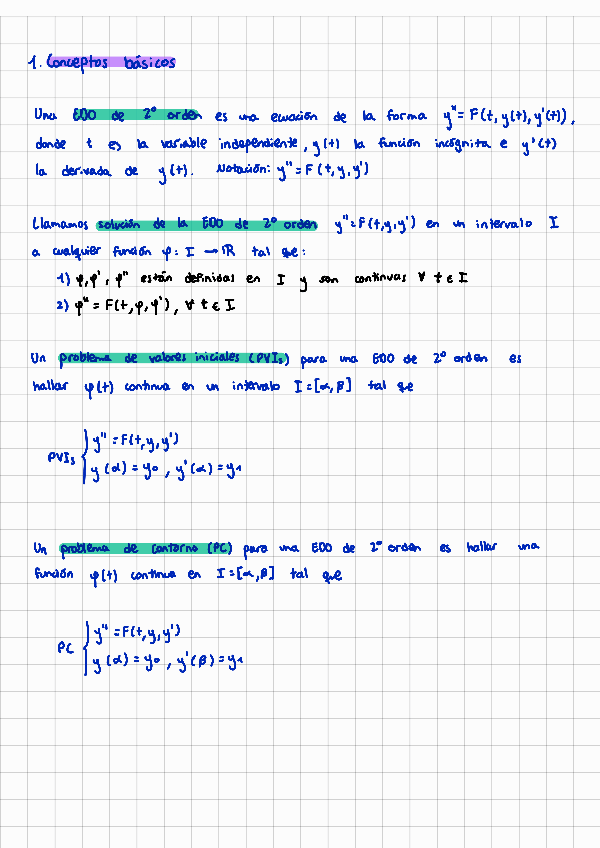 1. Conceptos básicos
Una EDO de 2º orden es una ecuación de la forma y'' = F(t, y(t), y'(t)),
donde t es la variable independiente, y(t) la función incógnita e y'(t)
la derivada de y(t). Notación: y'' = F(t, y, y')
Llamamos solución de la EDO de 2º orden y'' = F(t, y, y') en un intervalo I
a cualquier función φ: I → ℝ tal que:
1) φ, φ', φ'' están definidas en I y son continuas ∀ t ∈ I
2) φ'' = F(t, φ, φ'), ∀ t ∈ I
Un problema de valores iniciales (PVIs) para una EDO de 2º orden es
hallar φ(t) continua en un intervalo I = [α, β] tal que
PVIs { y'' = F(t, y, y')
y(α) = y₀, y'(α) = y₁
Un problema de contorno (PC) para una EDO de 2º orden es hallar una
función φ(t) continua en I = [α, β] tal que
PC { y'' = F(t, y, y')
y(α) = y₀, y'(β) = y₁